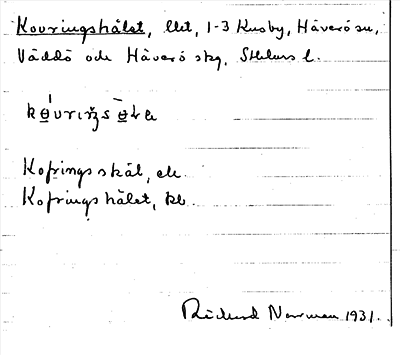 Kovringshålet, llt, 1-3 Kusby, Häverö sn,
Väddö och Häverö skg, Sthlms l.
Kofringsskäl, ek.
Kofringshålet, kb.
Richard Norrman 1931.